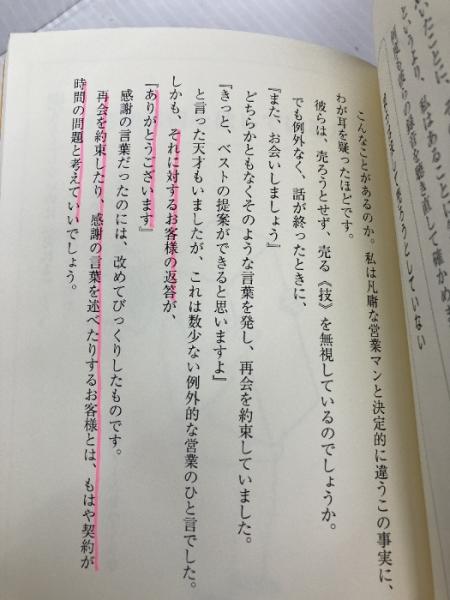 いたことに、
というより、私はあることに
何度も彼らの録音を聴き直して確かめま
こんなことがあるのか。私は凡庸な営業マンと決定的に違うこの事実に、
わが耳を疑ったほどです。
彼らは、売ろうとせず、売る《技》を無視しているのでしょうか。
でも例外なく、話が終ったときに、
『また、お会いしましょう』
どちらかともなくそのような言葉を発し、再会を約束していました。
『きっと、ベストの提案ができると思いますよ』
と言った天才もいましたが、これは数少ない例外的な営業のひと言でした。
しかも、それに対するお客様の返答が、
『ありがとうございます』
感謝の言葉だったのには、改めてびっくりしたものです。
再会を約束したり、感謝の言葉を述べたりするお客様とは、もはや契約が
時間の問題と考えていいでしょう。